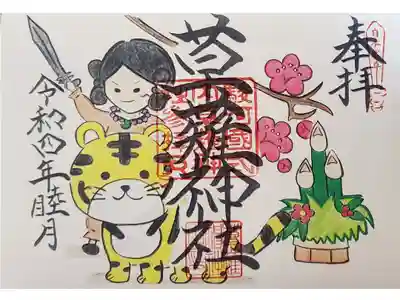 奉拝
草薙神社
令和四年睦月